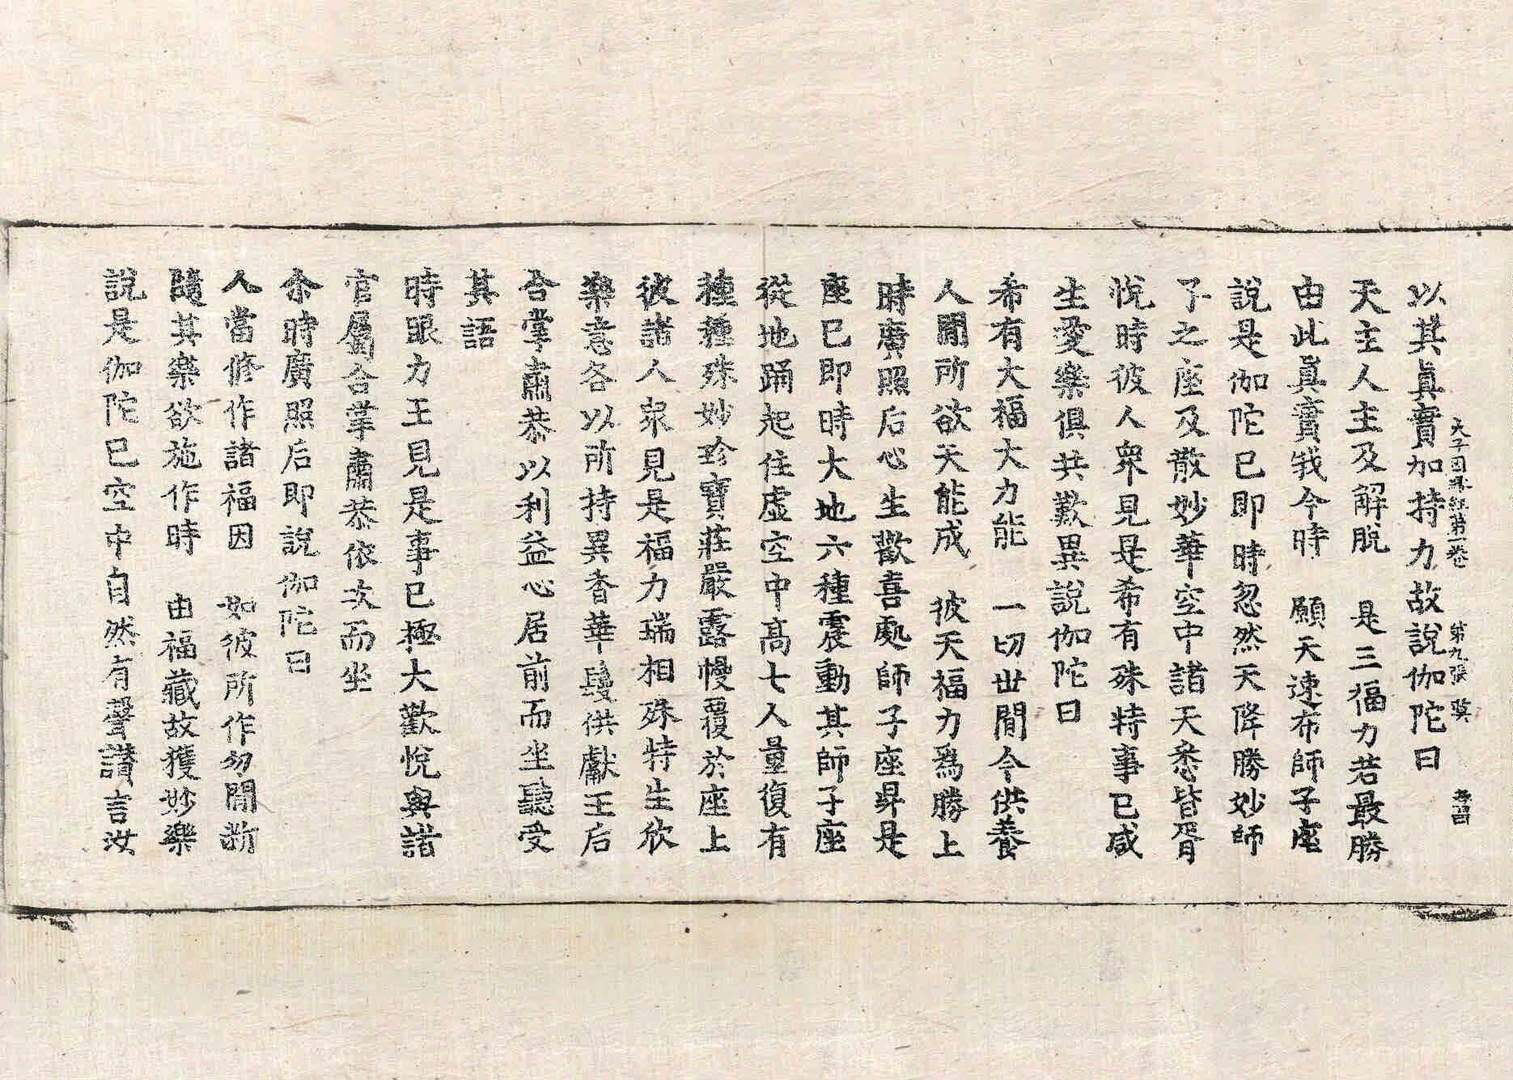 子因緣經第一卷 第九張
以其眞實加持力故說伽陀曰
天主人主及解脫 是三福力若最勝
由此眞實我今時 願天速布師子座
說是伽陀已即時忽然天降勝妙師
子之座及散妙華空中諸天悉皆胥
悅時彼人衆見是希有殊特事已咸
生愛樂俱共歎異說伽陀曰
希有大福大力能 一切世間今供養
人間所欲天能成 彼天福力爲勝上
時廣照后心生歡喜處師子座昇是
座已即時大地六種震動其師子座
從地踊起住虛空中高七人量復有
種種殊妙珍寶莊嚴露幔覆於座上
彼諸人衆見是福力瑞相殊特生欣
樂意各以所持異香華鬘供獻王后
合掌肅恭以利益心居前而坐聽受
其語
時眼力王見是事已極大歡悅與諸
官屬合掌肅恭依次而坐
尒時廣照后即說伽陀曰
人當修作諸福因 如彼所作勿間斷
隨其樂欲施作時 由福藏故獲妙樂
說是伽陀已空中自然有聲讚言汝